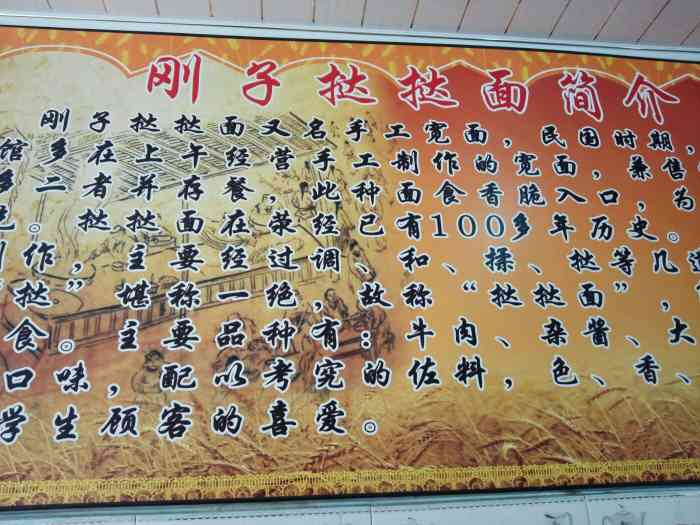 刚子挞挞面简介
刚子挞挞面又名手工宽面，民国时期，
馆多在上午经营，手工制作的宽面，兼售
多二者并存餐此种面食香脆入口，为
。挞挞面在荥经已有100多年历史。
作，主要经过调、和、揉、挞等几
“挞”堪称一绝，故称“挞挞面”，
食。主要品种有：牛肉、杂酱、大
口味，配以考究的佐料，色、香、
学生顾客的喜爱。